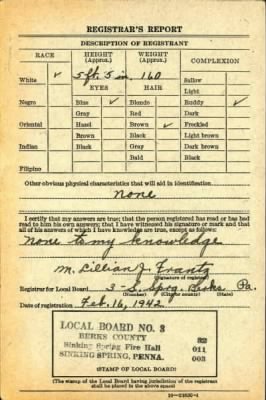 REGISTRAR'S REPORT
DESCRIPTION OF REGISTRANT
RACE HEIGHT (Approx.) WEIGHT (Approx.) COMPLEXION
White ✓ 5 ft. 5 in. 160 Sallow
EYES HAIR Light
Negro Blue ✓ Blonde Ruddy ✓
Gray Red Dark
Oriental Hazel Brown ✓ Freckled
Brown Black Light brown
Indian Black Gray Dark brown
Bald Black
Filipino
Other obvious physical characteristics that will aid in identification
None
I certify that my answers are true; that the person registered has read or has had
read to him his own answers; that I have witnessed his signature or mark and that
all of his answers of which I have knowledge are true, except as follows:
None to my knowledge
M. Lillian J. Frantz
(Signature of registrar)
Registrar for Local Board 3 - S. Sprg. Berks Pa.
(Number) (City or county) (State)
Date of registration Feb. 16, 1942
LOCAL BOARD NO. 3
BERKS COUNTY 32
Sinking Spring Fire Hall 011
SINKING SPRING, PENNA. 003
(STAMP OF LOCAL BOARD)
(The stamp of the Local Board having jurisdiction of the registrant
shall be placed in the above space)